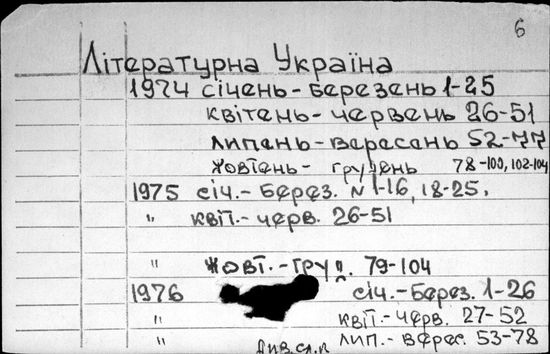 6
Літературна Україна
1974 січень-березень 1-25
квітень-червень 26-51
липень-вересань 52-77
жовтень- грудень 78-100, 102-104
1975 січ.-берез. N 1-16, 18-25.
" квіт.-черв. 26-51
" жовт.-груд. 79-104
1976 січ.-берез. 1-26
" квіт.-черв. 27-52
" лип.-верес. 53-78
Див. сл. п